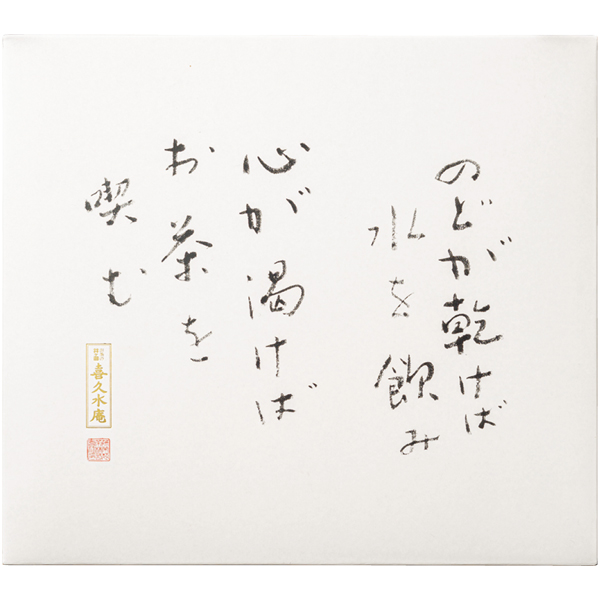 のどが乾けば
水を飲み
心が渇けば
お茶を
喫む
喜久水庵